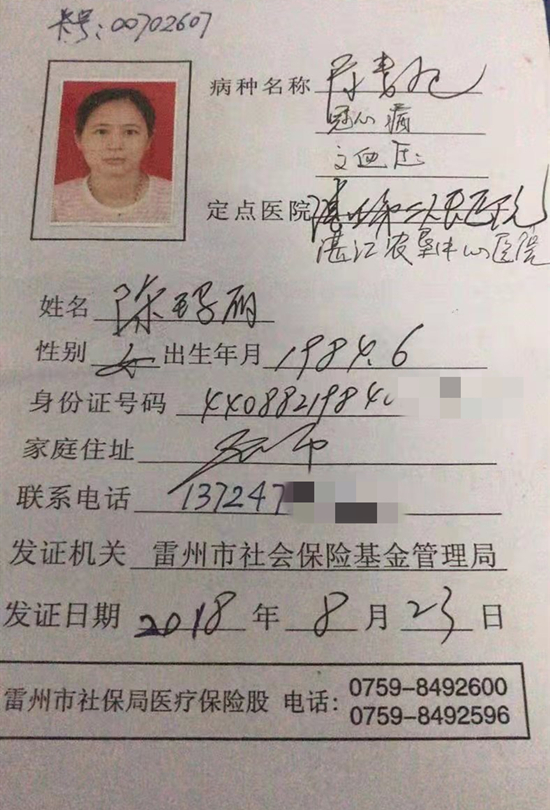 卡号:00702607
病种名称
冠心病
高血压
定点医院 湛江第二人民医院
湛江农垦中心医院
姓名 陈玛丽
性别 女 出生年月 1984.6
身份证号码 440882198406
家庭住址
联系电话 137247
发证机关 雷州市社会保险基金管理局
发证日期 2018 年 8 月 23 日
雷州市社保局医疗保险股 电话: 0759-8492600
0759-8492596